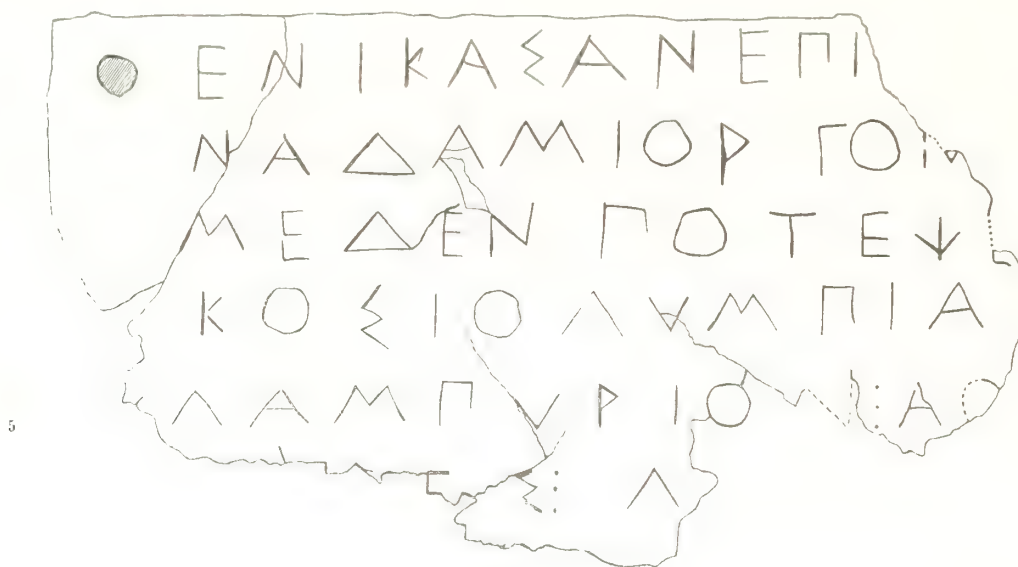 ΕΝΙΚΑΣΑΝΕΠΙ
ΝΑΔΑΜΙΟΡΓΟΙ
ΜΕΔΕΝΠΟΤΕΨ
ΚΟΣΙΟΛΥΜΠΙΑ
5 ΛΑΜΠΥΡΙΟ : ΑΟ
Σ : Λ